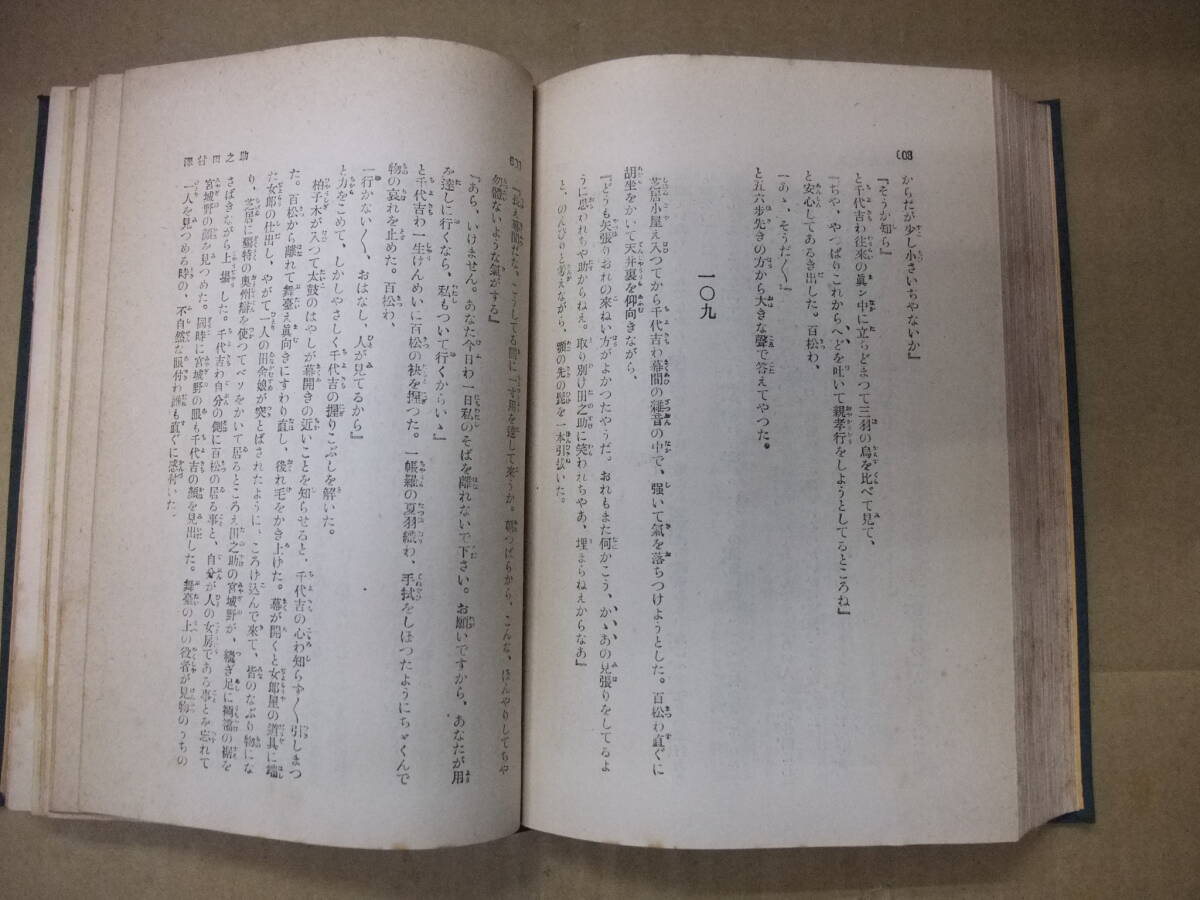 からだが少し小さいぢやないか』
『そうか知ら』
と千代吉わ往來の眞ン中に立らどまつて三羽の鳥を比べて見て、
『ぢや、やつぱりこれからへどを吐いて親孝行をしようとしてるところね』
と安心してあるき出した。百松わ、
『あゝ、そうだ〱』
と五六歩先きの方から大きな聲で答えてやつた。
一〇九
芝居小屋え入つてから千代吉わ幕間の雜音の中で、强いて氣を落ちつけようとした。百松わ直ぐに
胡坐をかいて天井裏を仰向きながら、
『どうも矢張りおれの來ねい方がよかつたやうだ。おれもまた何かこう、かゝあの見張りをしてるよ
うに思われちや助からねえ。取り別け田之助に笑われちやあ、埋まらねえからなあ』
と、のんびりと考えながら、顎の先の髭を一本引拔いた。
『長え幕間だな。こうしてる間に一寸用を達して來うか。朝つぱらから、こんな、ぼんやりしてちや
勿體ないような氣がする』
『あら、いけません。あなた今日わ一日私のそばを離れないで下さい。お願いですから、あなたが用
を達しに行くなら、私もついて行くからいゝ』
と千代吉わ一生けんめいに百松の袂を握つた。一帳羅の夏羽織わ、手拭をしぼつたようにちやくんで
物の哀れを止めた。百松わ、
『行かない〱、おはなし、人が見てるから』
と力をこめて、しかしやさしく千代吉の握りこぶしを解いた。
柏子木が入つて太鼓のはやしが幕開きの近いことを知らせると、千代吉の心わ知らず〱引しまつ
た。百松から離れて舞臺え眞向きにすわり直し、後れ毛をかき上げた。幕が開くと女郎屋の道具に端
た女郎の仕出し、やがて一人の田舍娘が突とばされたように、ころげ込んで來て、皆のなぶり物にな
り、芝居に獨特の奥州辯を使つてベソをかいて居るところえ田之助の宮城野が、繼ぎ足に裲襠の裾を
さばきながら上場した。千代吉わ自分の側に百松の居る事と、自分が人の女房である事とを忘れて
宮城野の顏を見つめた。同時に宮城野の眼も千代吉の顏を見出した。舞臺の上の役者が見物のうちの
一人を見つめる時の、不自然な眼付わ誰も直ぐに感付いた。
澤村田之助